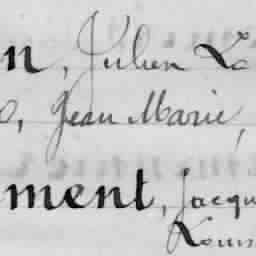 n, Julien La
o, Jean Marie,
ment, Jacqu
Louis